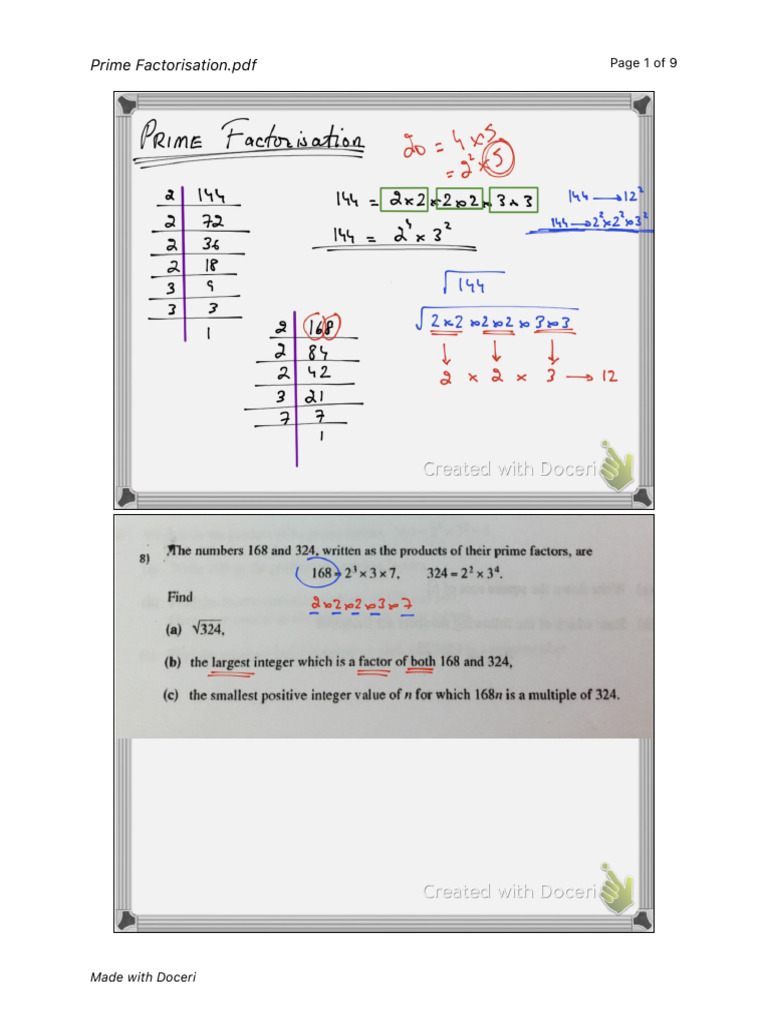 Prime Factorisation.pdf
Page 1 of 9
PRIME Factorisation
20 = 4 × 5
= 2² × 5
2 | 144
2 | 72
2 | 36
2 | 18
3 | 9
3 | 3
1
144 = 2×2 × 2×2 × 3×3
144 = 2⁴ × 3²
144 → 12²
144 → 2²×2²×3²
√144
√2×2 × 2×2 × 3×3
2 × 2 × 3 → 12
2 | 168
2 | 84
2 | 42
3 | 21
7 | 7
1
Created with Doceri
8) The numbers 168 and 324, written as the products of their prime factors, are
168 = 2³ × 3 × 7, 324 = 2² × 3⁴.
Find
2×2×2×3×7
(a) √324,
(b) the largest integer which is a factor of both 168 and 324,
(c) the smallest positive integer value of n for which 168n is a multiple of 324.
Created with Doceri
Made with Doceri